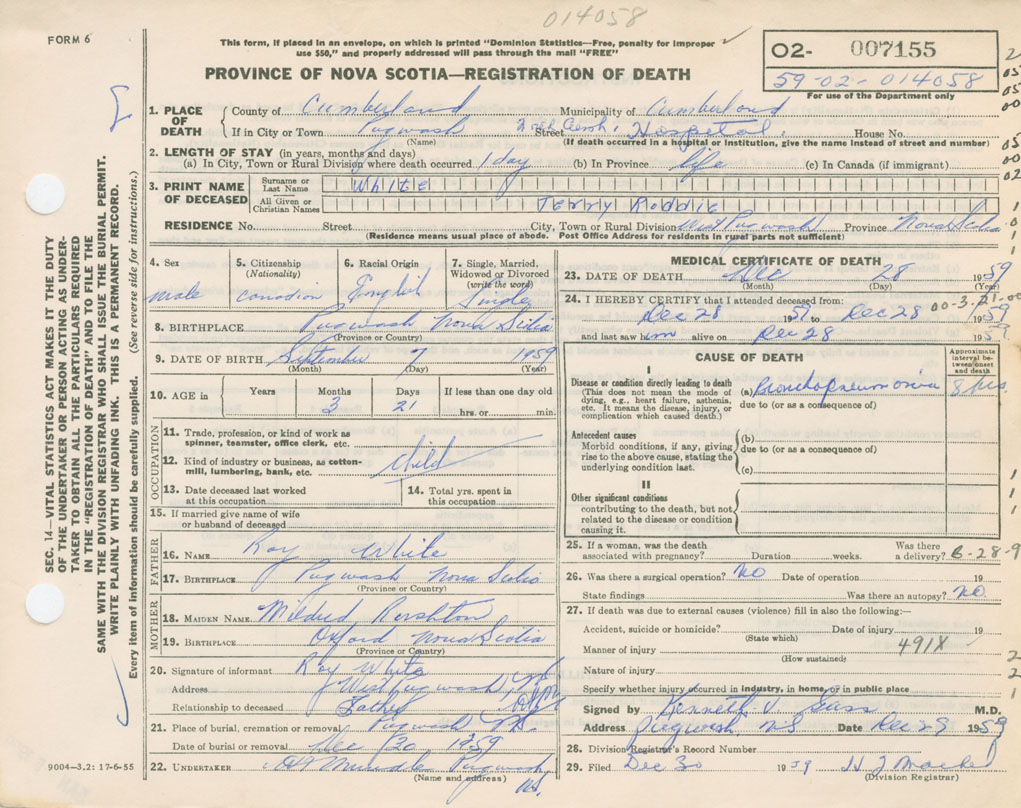 014058
FORM 6
This form, if placed in an envelope, on which is printed "Dominion Statistics—Free, penalty for improper
use $50," and properly addressed will pass through the mail "FREE"
O2- 007155
59-02-014058
For use of the Department only
PROVINCE OF NOVA SCOTIA—REGISTRATION OF DEATH
SEC. 14—VITAL STATISTICS ACT MAKES IT THE DUTY
OF THE UNDERTAKER OR PERSON ACTING AS UNDER-
TAKER TO OBTAIN ALL THE PARTICULARS REQUIRED
IN THE "REGISTRATION OF DEATH" AND TO FILE THE
SAME WITH THE DIVISION REGISTRAR WHO SHALL ISSUE THE BURIAL PERMIT.
WRITE PLAINLY WITH UNFADING INK. THIS IS A PERMANENT RECORD.
Every item of information should be carefully supplied. (See reverse side for instructions.)
1. PLACE OF DEATH County of Cumberland Municipality of Cumberland
If in City or Town Pugwash Street Hospital. House No.
(Name) (If death occurred in a hospital or institution, give the name instead of street and number)
2. LENGTH OF STAY (in years, months and days)
(a) In City, Town or Rural Division where death occurred 1 day (b) In Province life (c) In Canada (if immigrant)
3. PRINT NAME OF DECEASED Surname or Last Name White
All Given or Christian Names Terry Roddie
RESIDENCE No. Street City, Town or Rural Division West Pugwash Province Nova Scotia
(Residence means usual place of abode. Post Office Address for residents in rural parts not sufficient)
4. Sex 5. Citizenship (Nationality) 6. Racial Origin 7. Single, Married, Widowed or Divorced (write the word)
male canadian English Single
8. BIRTHPLACE Pugwash Nova Scotia
(Province or Country)
9. DATE OF BIRTH September 7 1959
(Month) (Day) (Year)
10. AGE in Years Months Days If less than one day old
3 21 hrs. or min.
OCCUPATION
11. Trade, profession, or kind of work as spinner, teamster, office clerk, etc.
12. Kind of industry or business, as cotton-mill, lumbering, bank, etc. child
13. Date deceased last worked at this occupation 14. Total yrs. spent in this occupation
15. If married give name of wife or husband of deceased
FATHER
16. NAME Roy White
17. BIRTHPLACE Pugwash Nova Scotia
(Province or Country)
MOTHER
18. MAIDEN NAME Mildred Rushton
19. BIRTHPLACE Oxford Nova Scotia
(Province or Country)
20. Signature of informant Roy White
Address West Pugwash NS
Relationship to deceased Father
21. Place of burial, cremation or removal Pugwash NS.
Date of burial or removal Dec 30 1959
22. UNDERTAKER Pugwash
(Name and address) NS.
9004-3.2: 17-6-55
MEDICAL CERTIFICATE OF DEATH
23. DATE OF DEATH Dec 28 1959
(Month) (Day) (Year)
24. I HEREBY CERTIFY that I attended deceased from: 00-3-21-00
Dec 28 1959 to Dec 28 1959
and last saw him alive on Dec 28 1959.
CAUSE OF DEATH Approximate interval between onset and death
I
Disease or condition directly leading to death (a) Bronchopneumonia 8 hrs
(This does not mean the mode of dying, e.g., heart failure, asthenia, etc. It means the disease, injury, or complication which caused death.) due to (or as a consequence of)
Antecedent causes (b)
Morbid conditions, if any, giving rise to the above cause, stating the underlying condition last. due to (or as a consequence of)
(c)
II
Other significant conditions
contributing to the death, but not related to the disease or condition causing it.
25. If a woman, was the death associated with pregnancy? Duration weeks. Was there a delivery? B-28-9
26. Was there a surgical operation? No Date of operation 19
State findings Was there an autopsy? No.
27. If death was due to external causes (violence) fill in also the following:—
Accident, suicide or homicide? Date of injury 19
(State which)
Manner of injury 491X
(How sustained)
Nature of injury
Specify whether injury occurred in industry, in home, or in public place
Signed by Kenneth V Gass M.D.
Address Pugwash NS Date Dec 29 1959
28. Division Registrar's Record Number
29. Filed Dec 30 1959
(Division Registrar)